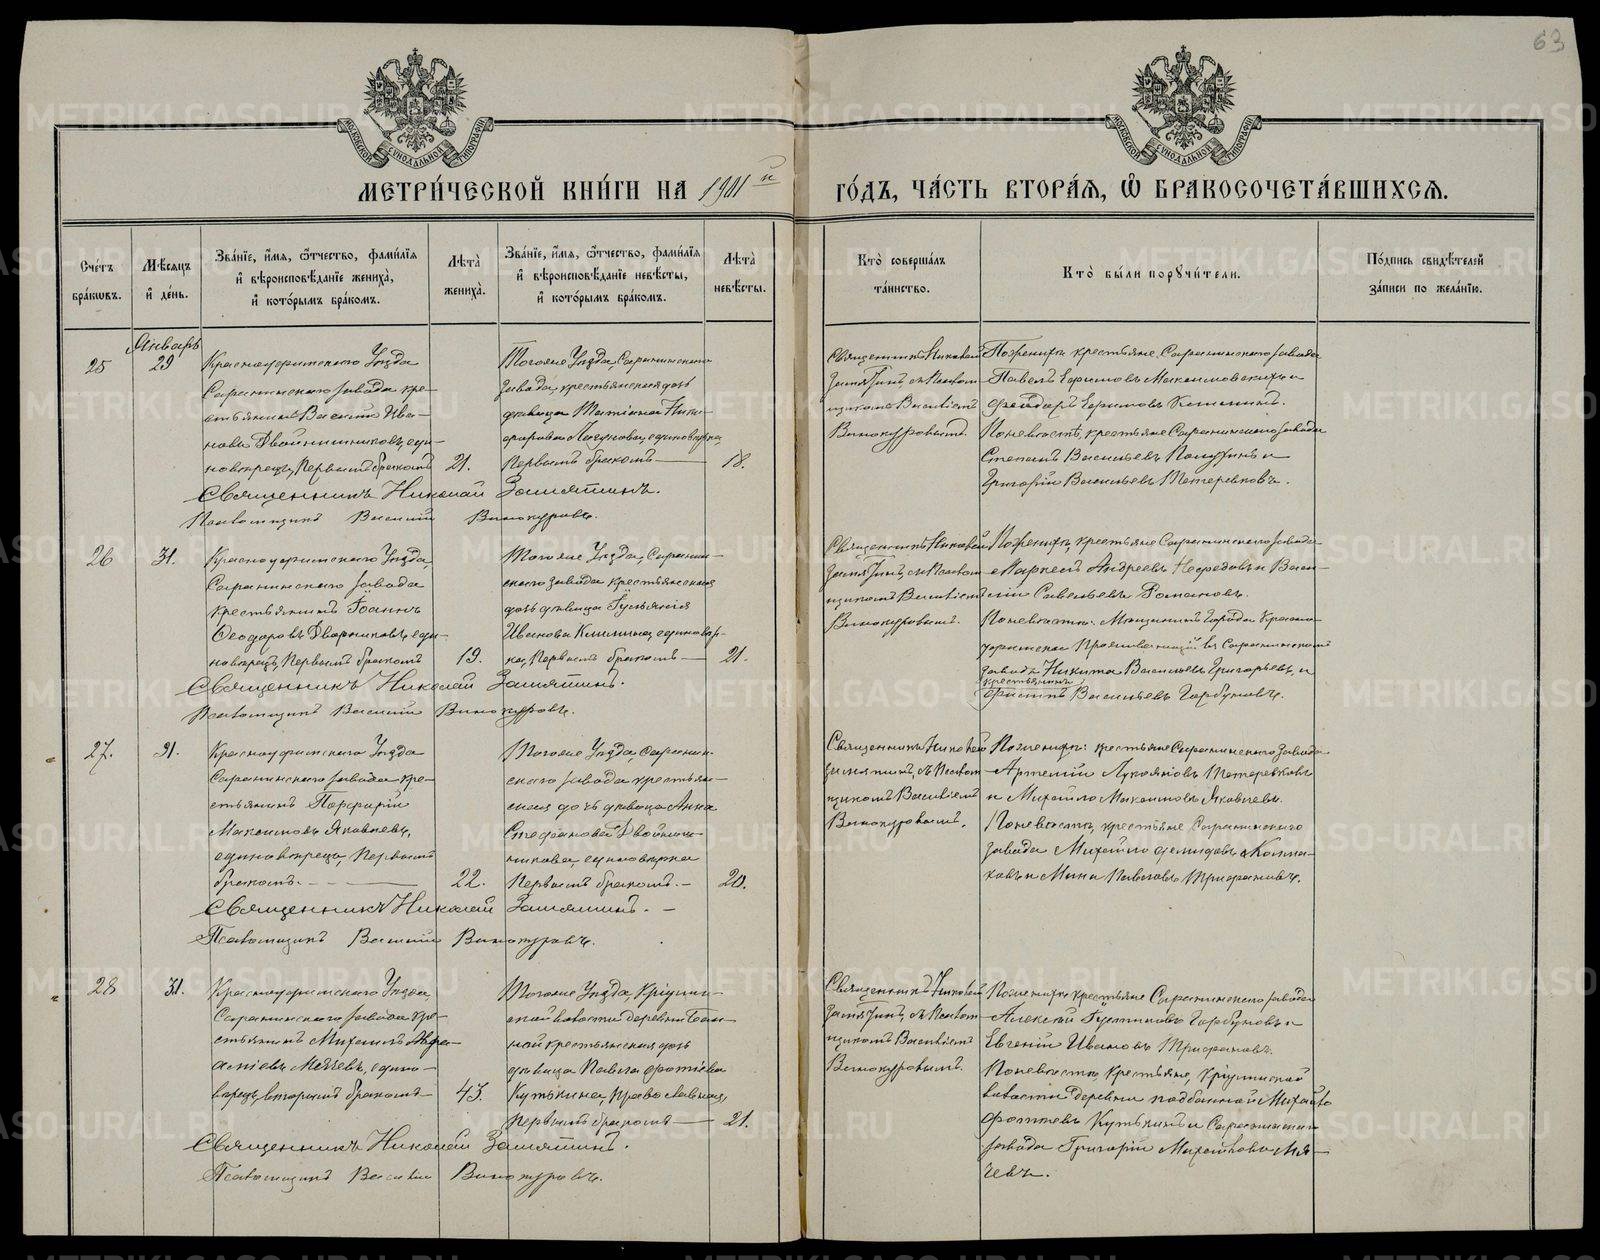 63
МЕТРИЧЕСКОЙ КНИГИ НА 1901й ГОДЪ, ЧАСТЬ ВТОРАЯ, Ѡ БРАКОСОЧЕТАВШИХСЯ.
Счетъ браковъ.
Мѣсяцъ и день.
Званіе, имя, отчество, фамилія и вѣроисповѣданіе жениха, и которымъ бракомъ.
Лѣта жениха.
Званіе, имя, отчество, фамилія и вѣроисповѣданіе невѣсты, и которымъ бракомъ.
Лѣта невѣсты.
Кто совершалъ таинство.
Кто были поручители.
Подпись свидѣтелей записи по желанію.
Январь
25
29
Красноуфимскаго Уѣзда
Саранинскаго завода кре-
стьянинъ Василій Ива-
новъ Двойнишниковъ, еди-
новѣрецъ, Первымъ бракомъ
21.
Тогоже Уѣзда, Саранинскаго
завода, крестьянская дочь
дѣвица Татіана Ники-
форова единовѣрка,
Первымъ бракомъ
18.
Священникъ Николай
Замятинъ, съ Псалом-
щикомъ Василіемъ
Винокуровымъ.
По женихѣ крестьяне Саранинскаго завода
Павелъ Ефимовъ и
Ефимовъ
По невѣстѣ, крестьяне Саранинскаго завода
Степанъ Васильевъ и
Григорій Васильевъ Тетеревковъ.
Священникъ Николай Замятинъ.
Псаломщикъ Василій Винокуровъ.
26
31.
Красноуфимскаго Уѣзда,
Саранинскаго завода
крестьянинъ Іоаннъ
Ѳеодоровъ Дворниковъ, еди-
новѣрецъ, Первымъ бракомъ
19.
Тогоже Уѣзда, Саранин-
скаго завода крестьянская
дочь дѣвица Іуліанія
Иванова единовѣр-
ка, Первымъ бракомъ
21.
Священникъ Николай
Замятинъ, съ Псалом-
щикомъ Василіемъ
Винокуровымъ.
По женихѣ, крестьяне Саранинскаго завода
Маркелъ Андреевъ и Васи-
лій Савельевъ Романовъ.
По невѣстѣ: Мѣщанинъ Города Красно-
уфимска Проживающій въ Саранинскомъ
заводѣ Никита Васильевъ Григорьевъ, и
крестьянинъ
Васильевъ Горбуновъ.
Священникъ Николай Замятинъ.
Псаломщикъ Василій Винокуровъ.
27.
31.
Красноуфимскаго Уѣзда
Саранинскаго завода кре-
стьянинъ Порфирій
Максимовъ Яковлевъ,
единовѣрецъ, Первымъ
бракомъ.
22.
Тогоже Уѣзда, Саранин-
скаго завода крестьян-
ская дочь дѣвица Анна
Стефанова Двойниш-
никова, единовѣрка
Первымъ бракомъ.
20.
Священникъ Николай
Замятинъ, съ Псалом-
щикомъ Василіемъ
Винокуровымъ.
По женихѣ: крестьяне Саранинскаго завода
Артемій Лукояновъ Тетеревковъ
и Михайло Максимовъ Яковлевъ.
По невѣстѣ, крестьяне Саранинскаго
завода Михайло Демидовъ Колма-
ковъ и Мина Павловъ Трифановъ.
Священникъ Николай Замятинъ.
Псаломщикъ Василій Винокуровъ.
28
31.
Красноуфимскаго Уѣзда,
Саранинскаго завода кре-
стьянинъ Михаилъ
едино-
вѣрецъ, вторымъ бракомъ
43.
Тогоже Уѣзда,
волости деревни
крестьянская дочь
дѣвица Павла Фотіева
Кутькина, Православная,
Первымъ бракомъ
21.
Священникъ Николай
Замятинъ, съ Псалом-
щикомъ Василіемъ
Винокуровымъ.
По женихѣ крестьяне Саранинскаго завода
Алексѣй Горбуновъ и
Евгеній Ивановъ Трифановъ.
По невѣстѣ, крестьяне,
волости деревни Михайло
Фотіевъ Кутькинъ и Саранинскаго
завода Григорій Михайловъ Мя-
чевъ.
Священникъ Николай Замятинъ.
Псаломщикъ Василій Винокуровъ.
METRIKI.GASO-URAL.RU